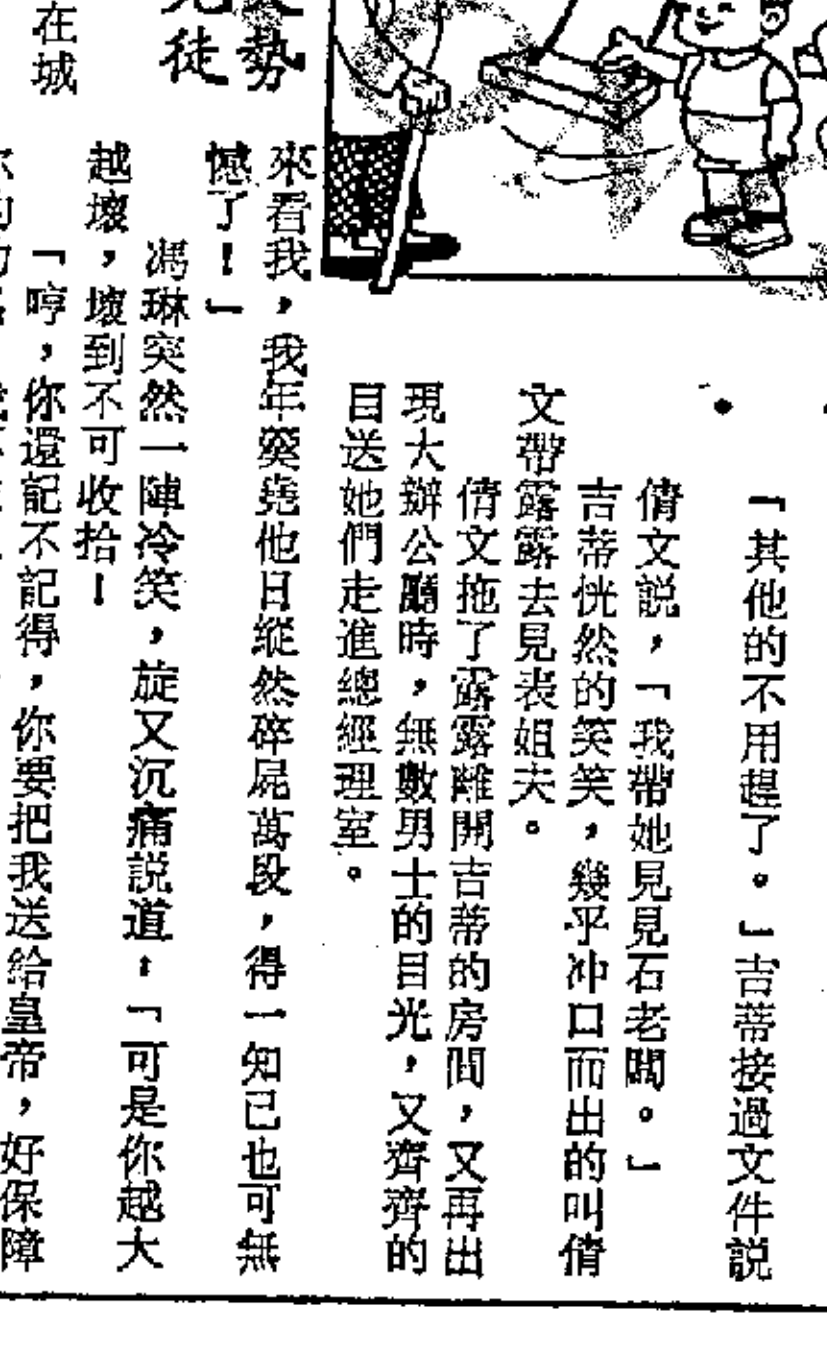 「其他的不用趕了。」吉蒂接過文件説
。
倩文説，「我帶她見見石老闆。」
吉蒂恍然的笑笑，幾乎冲口而出的叫倩
文帶露露去見表姐夫。
倩文拖了露露離開吉蒂的房間，又再出
現大辦公廳時，無數男士的目光，又齊齊的
目送她們走進總經理室。
勢
徒
在城
來看我，我年羹堯他日縱然碎屍萬段，得一知己也可無
憾了！」
馮琳突然一陣冷笑，旋又沉痛説道：「可是你越大
越壞，壞到不可收拾！
「哼，你還記不記得，你要把我送給皇帝，好保障